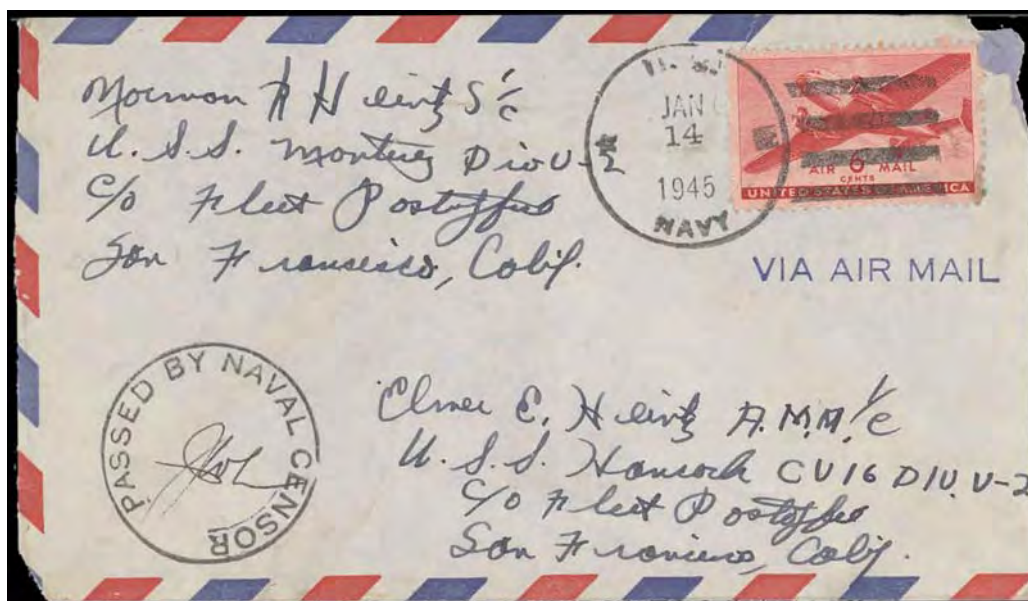 Norman A Heintz S 1/c
U.S.S. Monterey Div V-2
c/o Fleet Postoffice
San Francisco, Calif.
JAN
14
1945
NAVY
AIR 6 MAIL
CENTS
UNITED STATES OF AMERICA
VIA AIR MAIL
PASSED BY NAVAL CENSOR
Elmer E. Heintz A.M.M. 1/c
U.S.S. Hancock CV 16 DIV. V-2
c/o Fleet Postoffice
San Francisco, Calif.